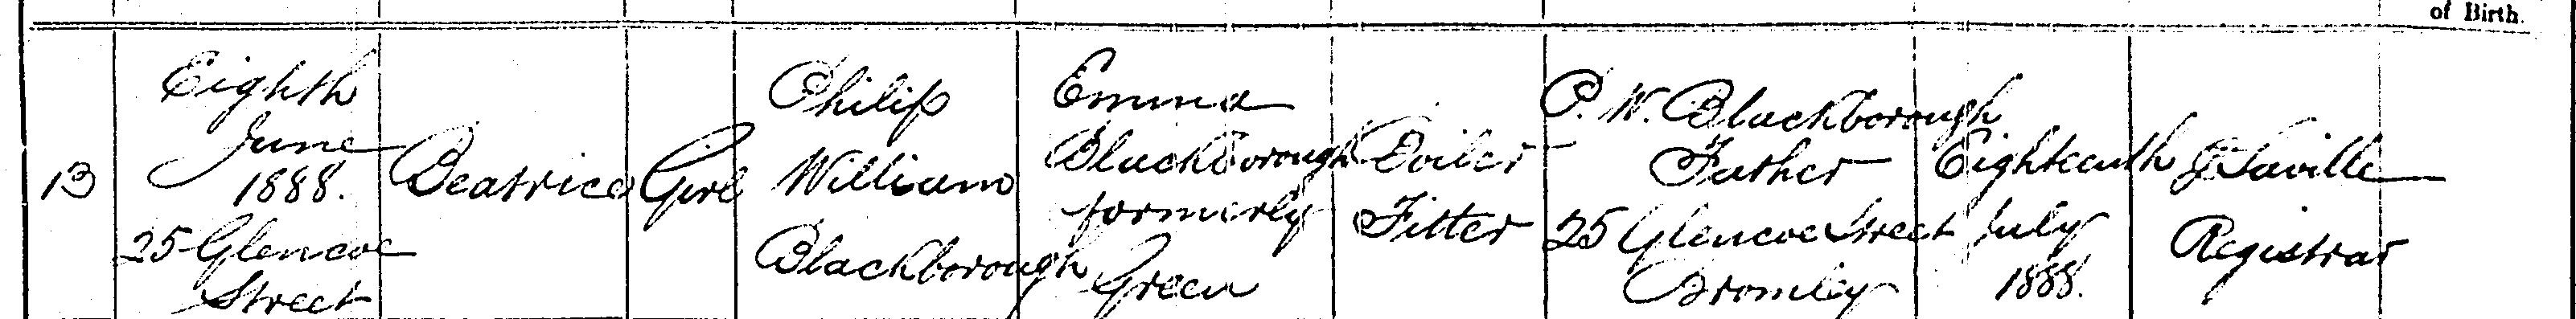 of Birth.
13
Eighth
June
1888.
25 Glencoe
Street
Beatrice
Girl
Philip
William
Blackborough
Emma
Blackborough
formerly
Green
Boiler
Fitter
P. W. Blackborough
Father
25 Glencoe Street
Bromley
Eighteenth
July
1888.
J Saville
Registrar